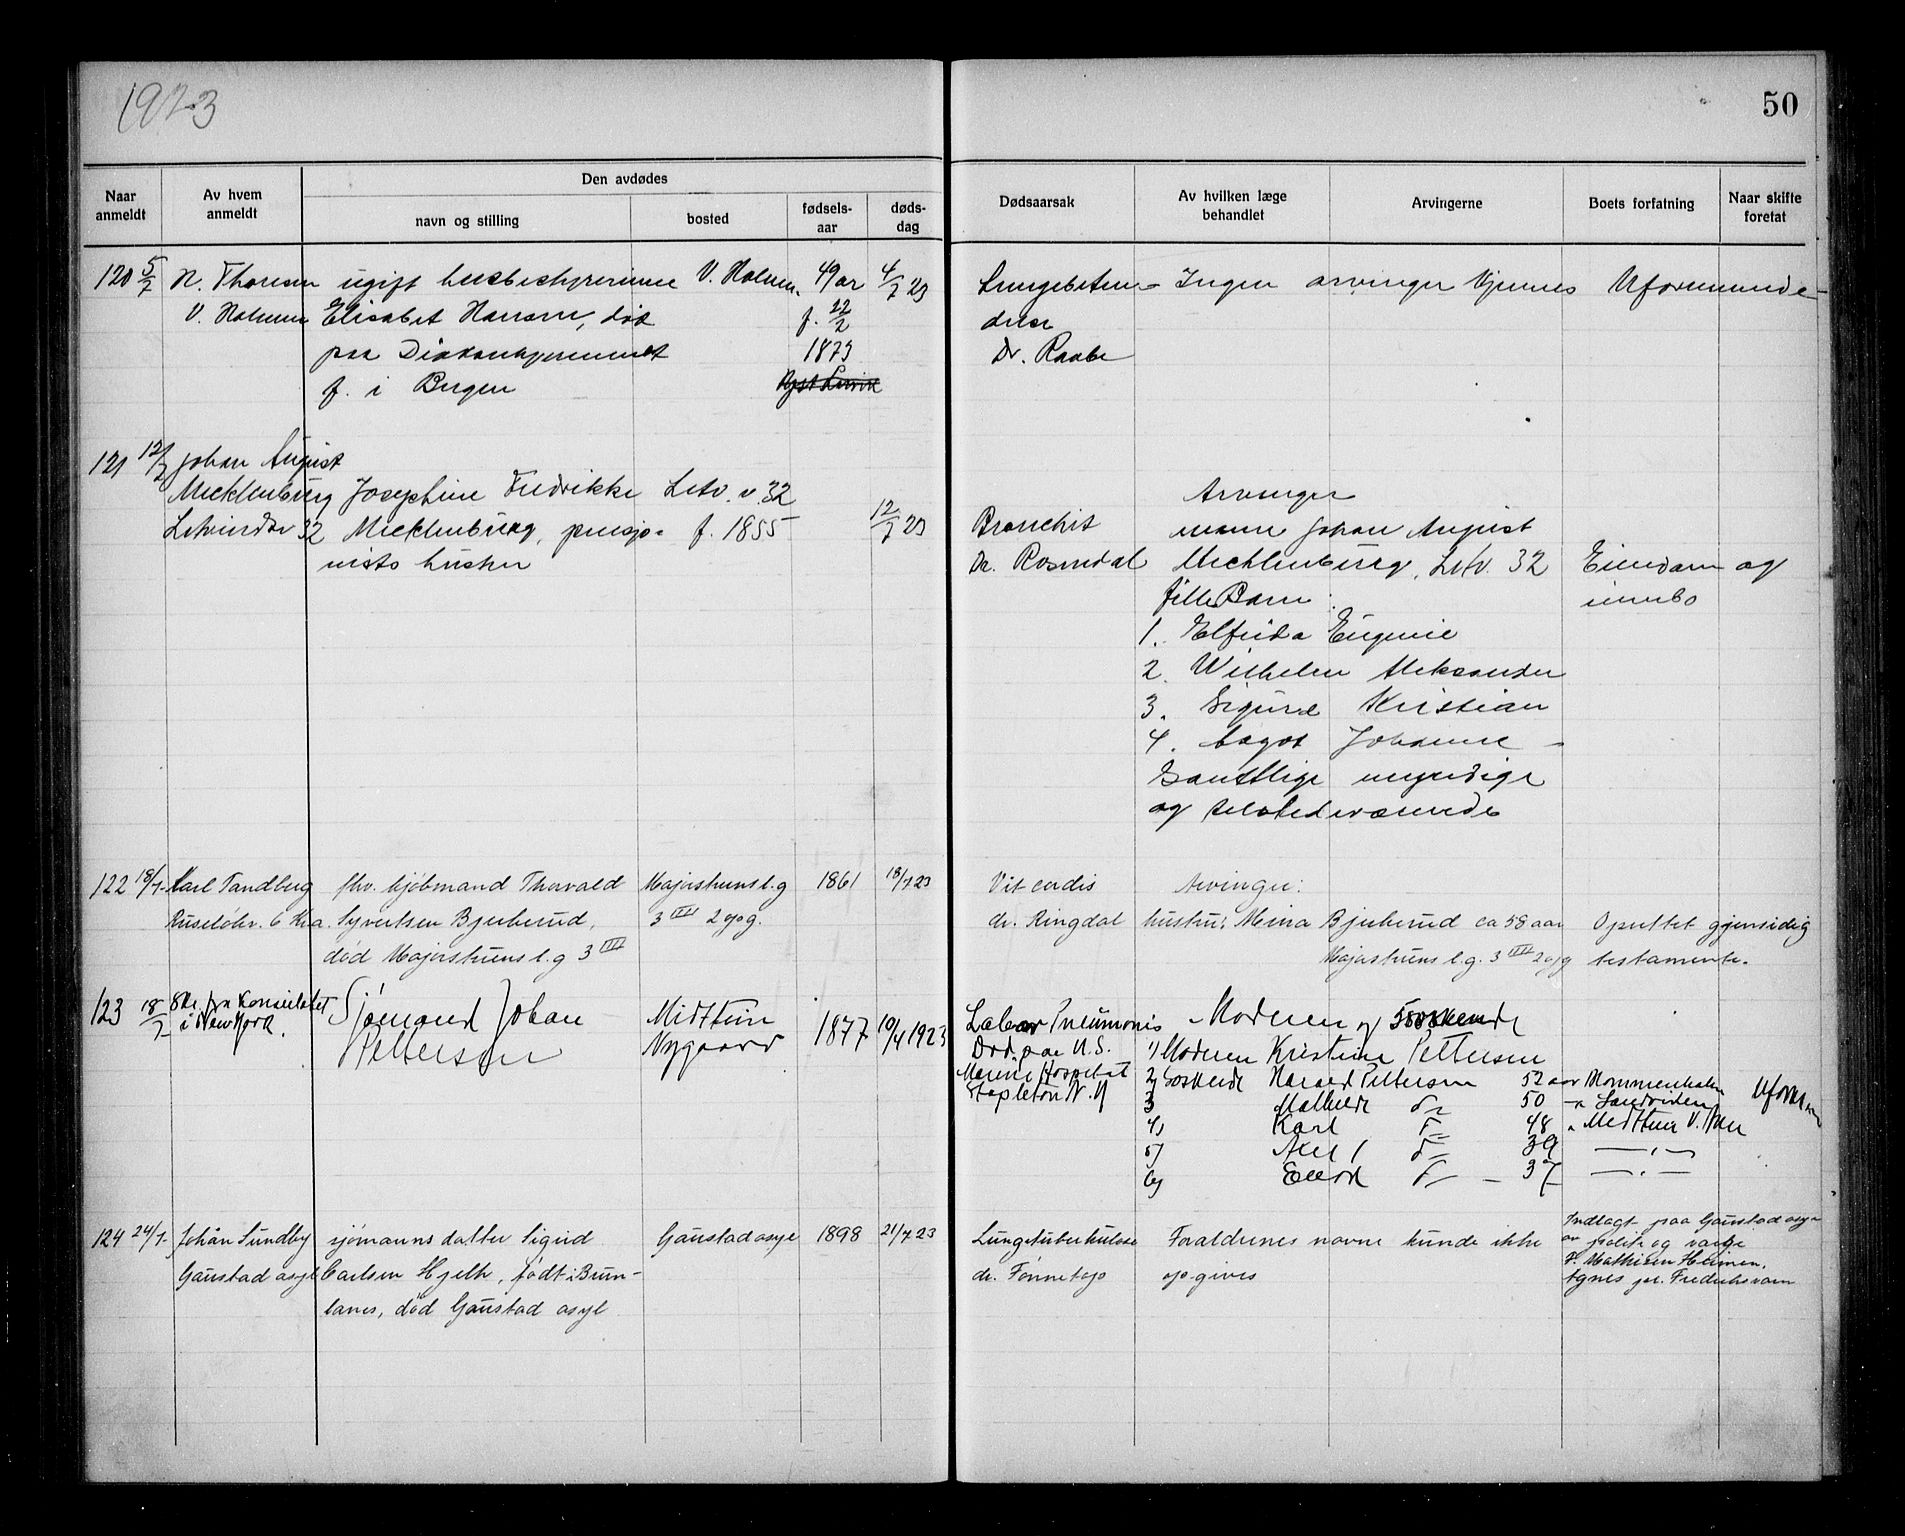 1923
50
Naar anmeldt
Av hvem anmeldt
Den avdødes
navn og stilling
bosted
fødsels-aar
døds-dag
Dødsaarsak
Av hvilken læge behandlet
Arvingerne
Boets forfatning
Naar skifte foretat
120 5/7 N. Thoresen ugift husbestyrerinne V. Holmen. 49 ar 4/7 23
V. Holmen Elisabet Hansen, død f. 22/2
paa Diakonhjemmet 1873
f. i Bergen
Lungebeten- Ingen arvinger kjennes Uformuende
delse
Dr. Raabe
121 12/7 Johan August
Mecklenburg Josephine Fredrikke Letv. v. 32
Letvindtv 32 Mecklenburg, pensjo- f. 1855 12/7 23
nists hustru
Arvinger
Bronchit mann Johan August
Dr. Rosendal Mecklenburg, Letv. 32 Eiendom og
fælles Barn: innbo
1. Elfrida Eugenie
2. Wilhelm Aleksander
3. Sigurd Kristian
4. Aagot Johanne
Samtlige myndige
og tilstedeværende
122 18/7- Karl Tandberg fhv. kjøbmand Thorvald Majorstuens l.g 1861 18/7 23
Ruseløkv. 6 Kra. Syvertsen Bjerkerud, 3 III 2 opg.
død Majorstuens l.g 3 III
Vit cordis Arvinger:
dr. Ringdal hustru: Mina Bjerkerud ca 58 aar Oprettet gjensidig
Majorstuens l.g. 3 III 2 opg testamente.
123 18/7 Skr. fra Konsulatet Sjømand Johan Midttun 1877 10/4 1923
i New York. Pettersen Nygaard
Lobær Pneumonis Moderen og Søskende
Død paa U.S. 1) Moderen Kristine Pettersen
Marine Hospital 2) Søskende Harald Pettersen 52 aar Uform
Stapleton N.Y 3 Mathilde do 50 " Sandviken
4) Karl do 48 " Midttun V. Aker
5) Axel do 39 — " —
6) Einar do — 37 — " —
124 24/7- Johan Sundby sjømanns datter Sigrid Gaustad asyl 1898 21/7 23
Gaustad asyl Carlsen Hjelle, født i Brun-
lanes, død Gaustad asyl
Lungetuberkulose Foreldrenes navne kunde ikke Indlagt paa Gaustad asyl
dr. Tønnetop opgives av politi og værge
H. Mathisen Heimen,
Agnes pr. Fredriksvern